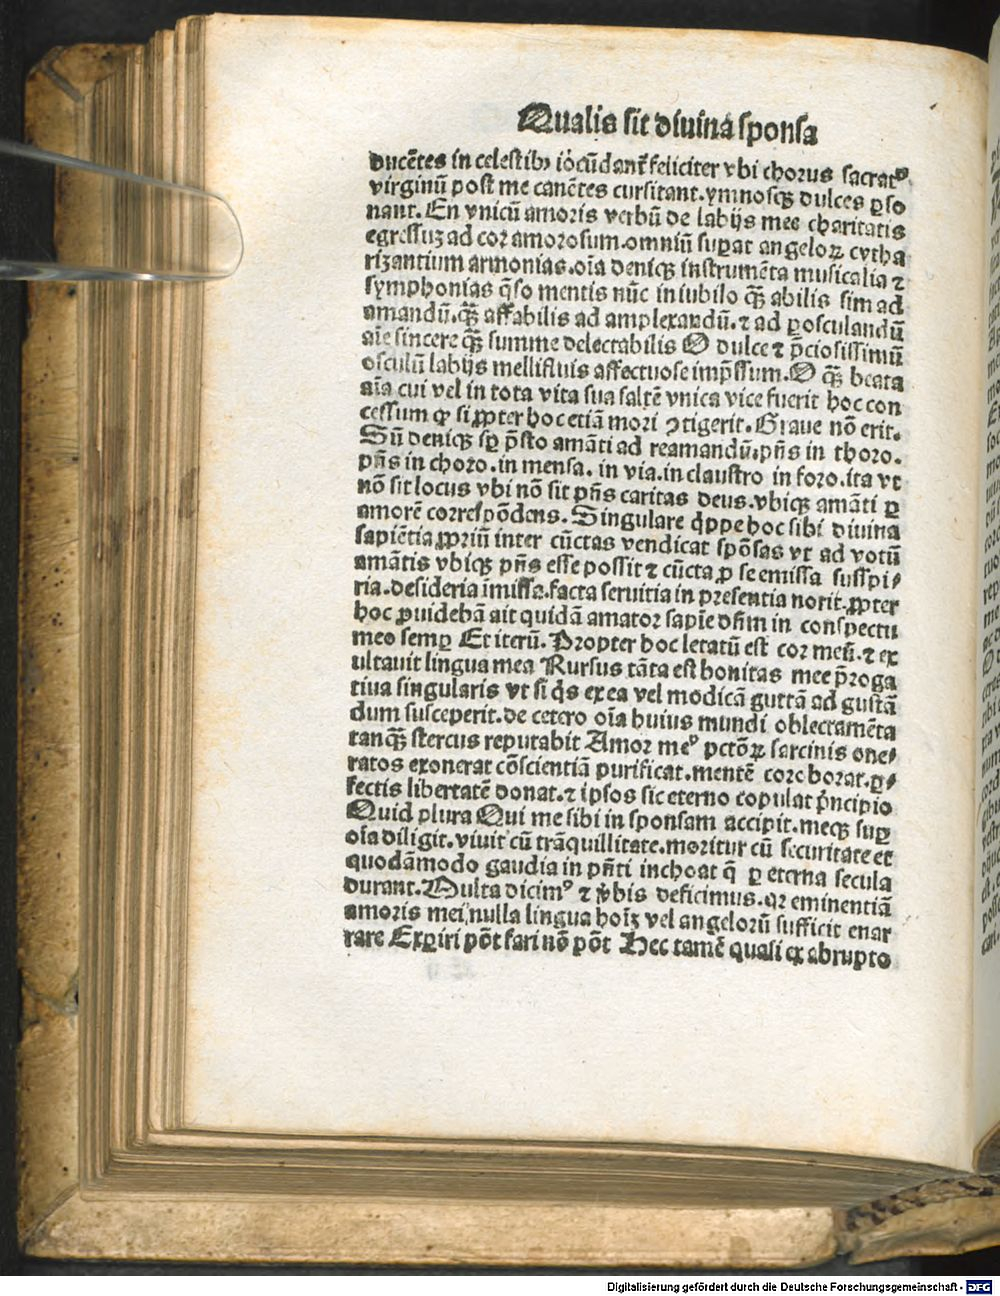 Qualis sit diuina sponsa
ducẽtes in celestibꝰ iocũdant᷑ feliciter vbi chorus sacratꝰ
virginũ post me canẽtes cursitant. ymnosqꝫ dulces ꝑso
nant. En vnicũ amoris verbũ de labijs mee charitatis
egressuꝫ ad cor amorosum. omniũ suꝑat angeloꝝ cytha
rizantium armonias. oĩa deniqꝫ instrumẽta musicalia ⁊
symphonias q̃so mentis nũc in iubilo qꝫ̃ abilis sim ad
amandũ. qꝫ̃ affabilis ad amplexandũ. ⁊ ad ꝑosculandũ
aĩe sincere qꝫ̃ summe delectabilis O dulce ⁊ p̃ciosissimũ
osculũ labijs mellifluis affectuose imp̃ssum. O qꝫ̃ beata
aĩa cui vel in tota vita sua saltẽ vnica vice fuerit hoc con
cessum ꝙ si ꝓpter hoc etiã mori ꝯtigerit. Graue nõ erit.
Sũ deniqꝫ sꝑ p̃sto amãti ad reamandũ. pñs in thoro.
pñs in choro. in mensa. in via. in claustro in foro. ita vt
nõ sit locus vbi nõ sit pñs caritas deus. vbiqꝫ amãti ꝑ
amorẽ correspõdens. Singulare q̇ppe hoc sibi diuina
sapiẽtia ꝓpriũ inter cũctas vendicat spõsas vt ad votũ
amãtis vbiqꝫ pñs esse possit ⁊ cũcta ꝓ se emissa suspi⸗
ria. desideria ĩmissa. facta seruitia in presentia norit. ꝓpter
hoc ꝓuidebã ait quidã amator sapiẽ dñm in conspectu
meo semꝑ Et iterũ. Propter hoc letatũ est cor meũ. ⁊ ex
ultauit lingua mea Rursus tãta est bonitas mee p̃roga
tiua singularis vt si q̇s ex ea vel modicã guttã ad gustã
dum susceperit. de cetero oĩa huius mundi oblectamẽta
tanqꝫ̃ stercus reputabit Amor meꝰ pctõꝝ sarcinis one⸗
ratos exonerat cõscientiã purificat. mentẽ corroborat. ꝑ⸗
fectis libertatẽ donat. ⁊ ipsos sic eterno copulat p̃ncipio
Quid plura Qui me sibi in sponsam accipit. meqꝫ suꝑ
oĩa diligit. viuit cũ trãquillitate. moritur cũ securitate et
quodãmodo gaudia in pñti inchoat q̃ ꝑ eterna secula
durant. Multa dicimꝰ ⁊ v̾bis deficimus. qꝛ eminentiã
amoris mei nulla lingua hoĩꝫ vel angelorũ sufficit enar
rare Exꝑiri põt fari nõ põt Hec tamẽ quasi ex abrupto
Digitalisierung gefördert durch die Deutsche Forschungsgemeinschaft - DFG